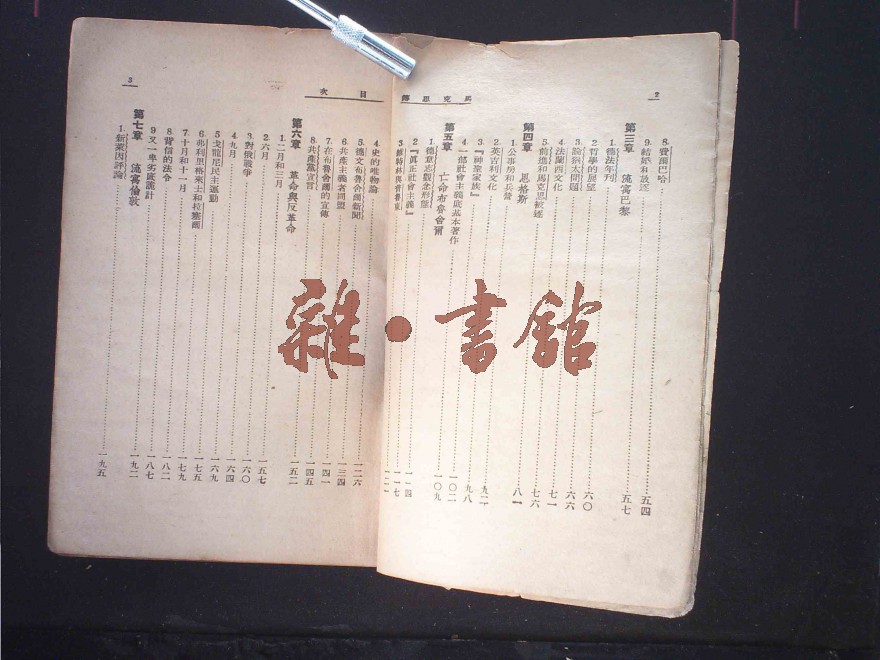 2
馬克思傳
8. 費爾巴哈 五四
9. 結婚和放逐 五七
第三章 流寓巴黎
1. 德法年刊
2. 哲學的展望 六〇
3. 論猶太問題 六六
4. 法蘭西文化 七一
5. 前進和馬克思被逐 七六
第四章 恩格斯
1. 公事房和兵營 八一
2. 英吉利文化
3. 『神聖家族』 九二
4. 一部社會主義底基本著作 九八
第五章 亡命布魯舍爾 一〇二
1. 德意志觀念形態 一〇九
2. 『眞正社會主義』 一一四
3. 維特林與普魯東 一一七
目次
3
4. 史的唯物論 一二一
5. 德文布魯舍爾新聞 一二六
6. 共產主義者同盟 一三四
7. 在布魯舍爾的宣傳 一四一
8. 共產黨宣言 一四五
第六章 革命與反革命 一五二
1. 二月和三月
2. 六月 一五七
3. 對俄戰爭 一六〇
4. 九月 一六四
5. 戈龍尼民主運動 一六九
6. 弗利里格來士和拉塞爾 一七五
7. 十月和十一月 一七九
8. 背信的法令 一八二
9. 又一卑劣底詭計 一八七
第七章 流寓倫敦 一九二
1. 新萊因評論 一九五
雜·書館